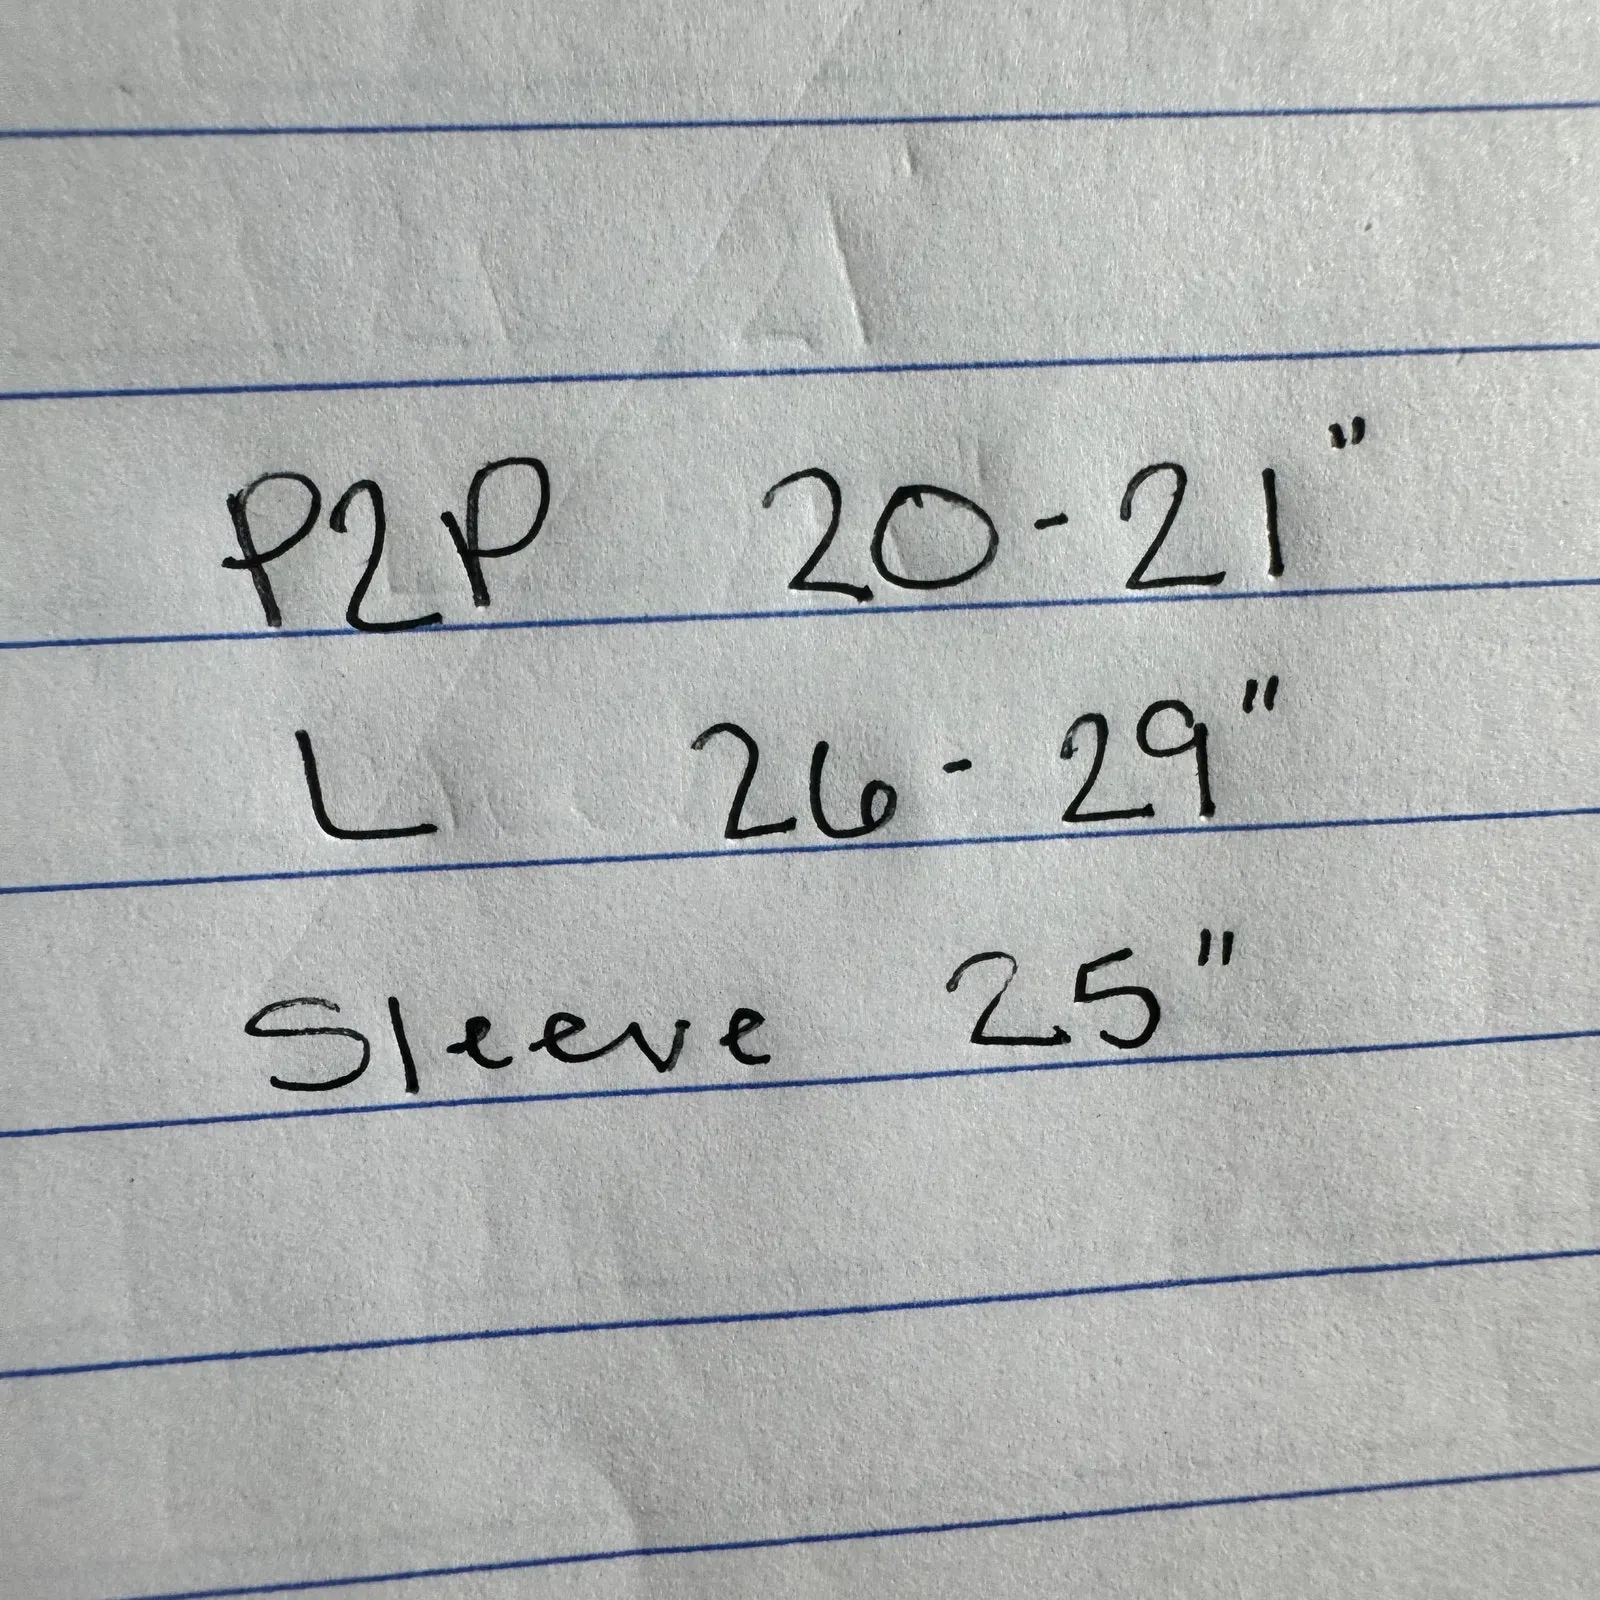 P2P 20-21"
L 26-29"
Sleeve 25"